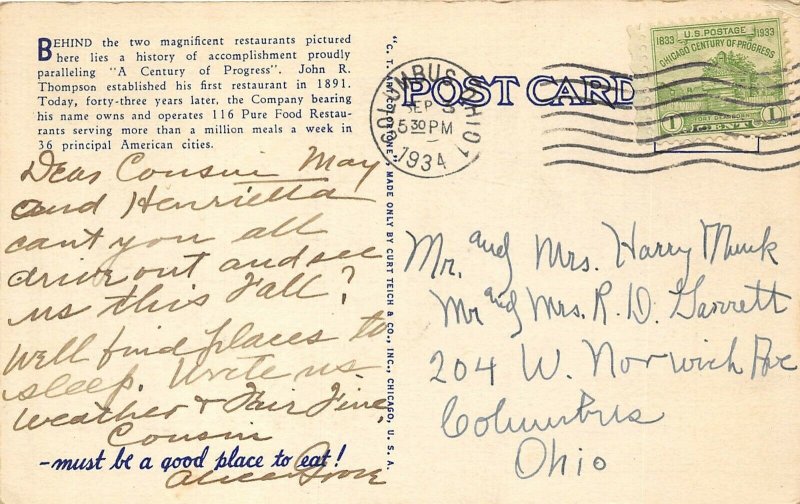 BEHIND the two magnificent restaurants pictured
here lies a history of accomplishment proudly
paralleling "A Century of Progress". John R.
Thompson established his first restaurant in 1891.
Today, forty-three years later, the Company bearing
his name owns and operates 116 Pure Food Restau-
rants serving more than a million meals a week in
36 principal American cities.
Dear Cousin May
and Henrietta
cant you all
drive out and see
us this Fall?
Well find places to
sleep. Write us
Weather & Fair Fine,
Cousin
—must be a good place to eat!
Alice
"C. T. ART-COLORTONE" MADE ONLY BY CURT TEICH & CO., INC., CHICAGO, U. S. A.
POST CARD
COLUMBUS, OHIO
SEP
5 30 PM
1934
U.S. POSTAGE
1833 1933
CHICAGO CENTURY OF PROGRESS
FORT DEARBORN
1 CENT 1
Mr. and Mrs. Harry Munk
Mr and Mrs. R. D. Garrett
204 W. Norwich Ave
Columbus
Ohio